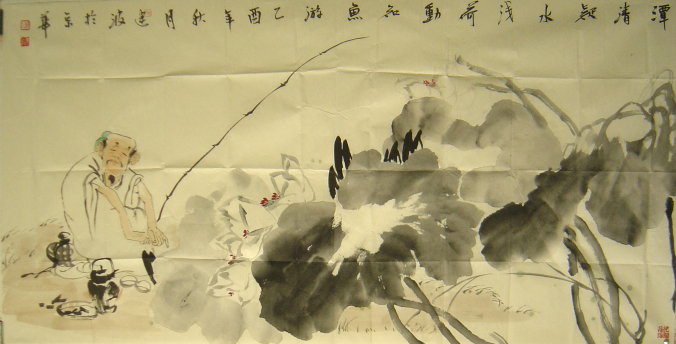 潭清疑水浅荷動知魚游乙酉年秋月建波於京華